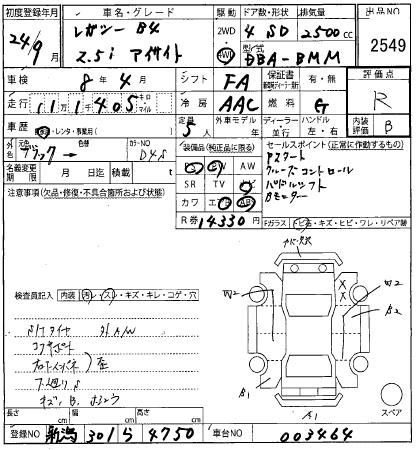 初度登録年月 車名・グレード 駆動 ドア数・形状 排気量 出品NO
24年9月 レガシー B4 2WD 4 SD 2500cc 2549
2.5i アイサイト 4WD 型式 DBA-BMM
車検 8年4月 シフト FA 保証書 有・無 評価点
走行 111405 キロ・マイル 冷房 AAC 燃料 G R
車歴 レンタ・事業用 定員 5人 外車モデル 年 ディーラー・並行 ハンドル 左・右 内装評価 B
外色 元色 ブラック 色替 カラーNO D4S 装備品(純正品に限る) セールスポイント(正常に作動するもの)
PS PW AW Pスタート
名義変更期限 月 日 積載 t SR TV クルーズコントロール
注意事項(欠品・修復・不具合箇所および状態) カワ エアB AB パドルシフト
Bモニター
R券 14330円 Fガラス トビ石・キズ・ヒビ・ワレ・リペア跡
検査員記入 内装 汚レ・スレ・キズ・キレ・コゲ・穴
外A/W
下廻りS
W2
X
X
B2
B1
A1
スペア
長さ cm 幅 cm 高さ cm
登録NO 新潟 301 ら 4750 車台NO 003464